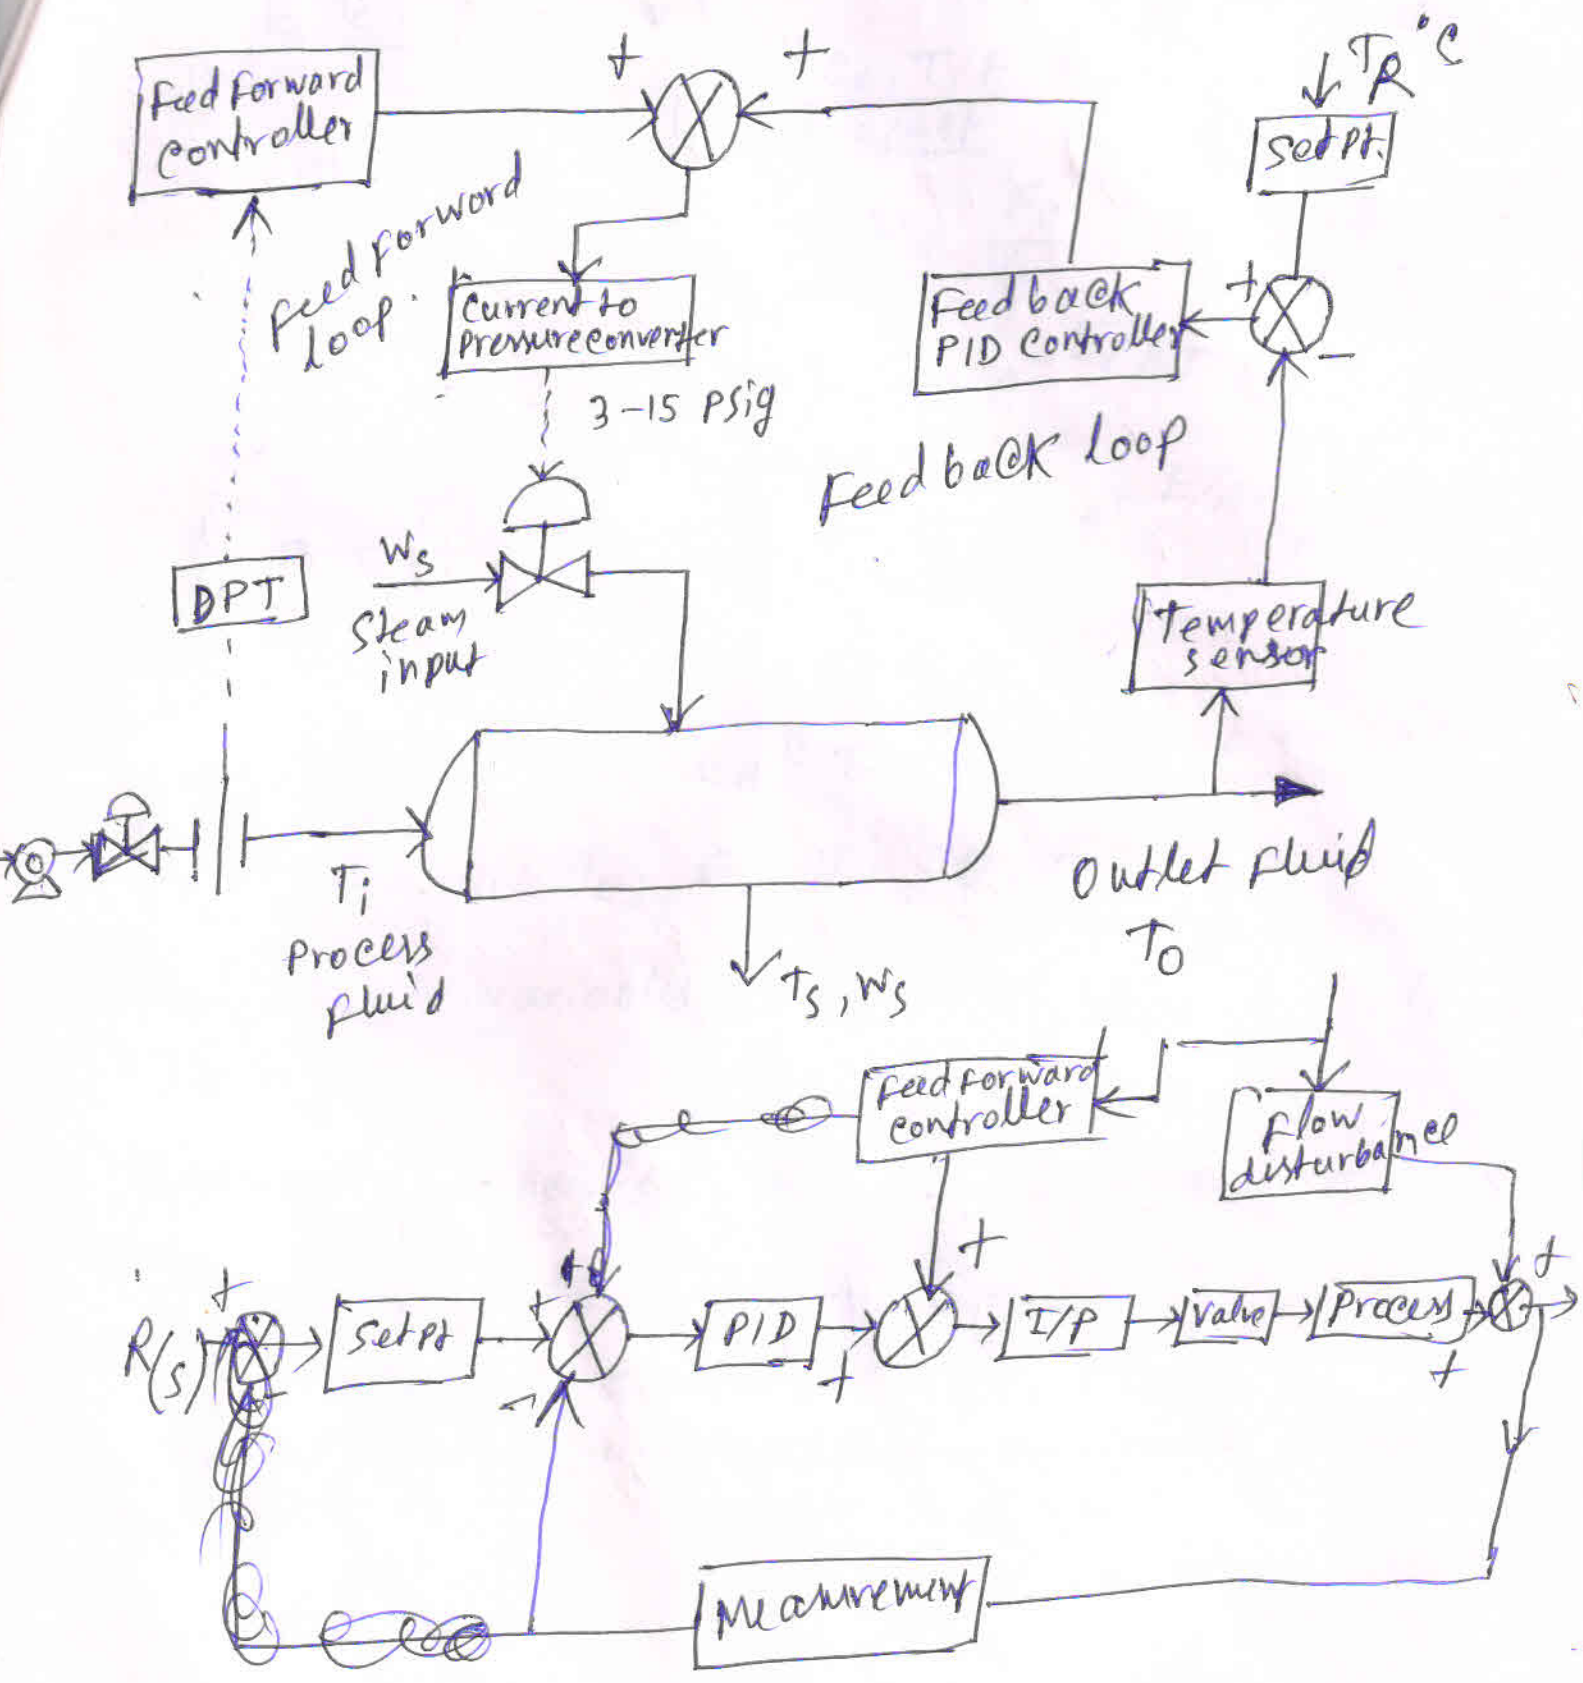 + +
T_R °C
Feed forward
controller
Set pt.
Feed forword
loop.
Current to
Pressure converter
Feed back
PID Controller
+
−
3-15 psig
Feed back loop
W_S
Steam
input
DPT
Temperature
sensor
T_i
Process
fluid
Outlet fluid
T_O
T_S, W_S
Feed forward
controller
Flow
disturbance
+
+
R(s)
+
Set pt
+
−
PID
+
I/P
Valve
Process
+
Measurement